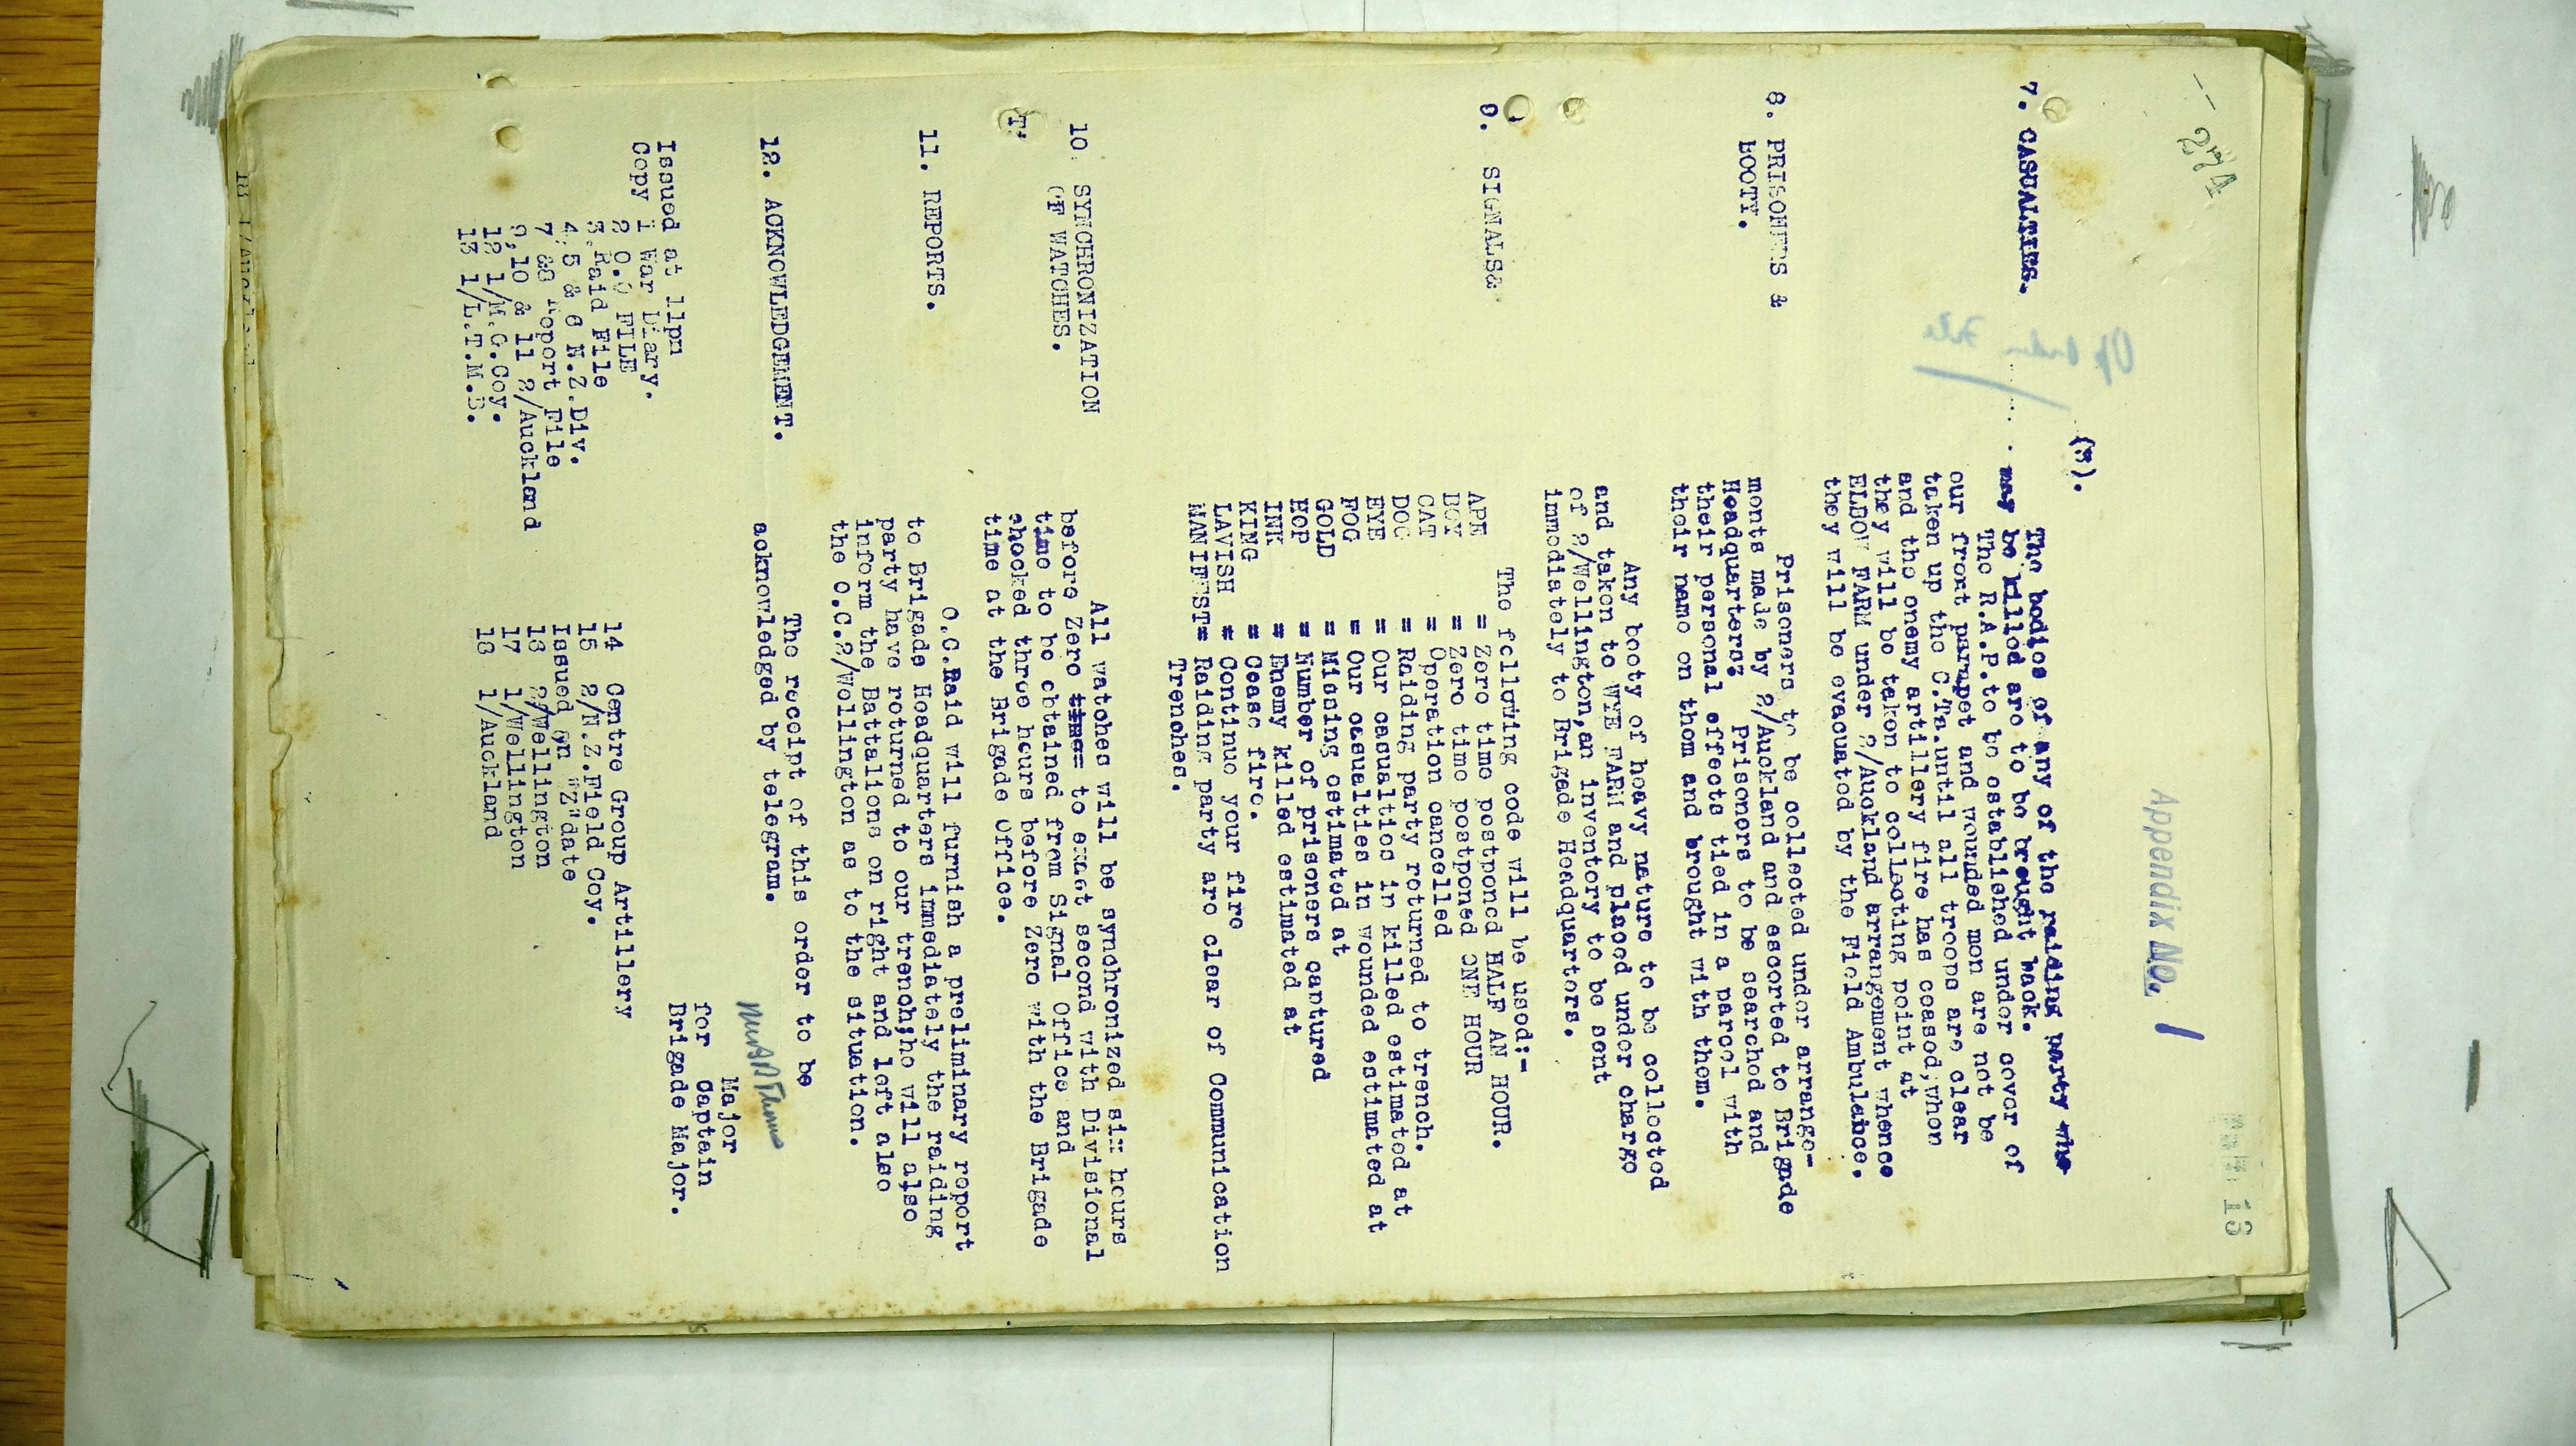 Appendix No. 1
13
(3).
7. CASUALTIES. The bodies of any of the raiding party who
may be killed are to be brought back.
The R.A.P. to be established under cover of
our front parapet and wounded men are not be
taken up the C.Ts. until all troops are clear
and the enemy artillery fire has ceased, when
they will be taken to collecting point at
ELBOW FARM under 2/Auckland arrangement whence
they will be evacuated by the Field Ambulance.
8. PRISONERS & Prisoners to be collected under arrange-
BOOTY. ments made by 2/Auckland and escorted to Brigade
Headquarters? Prisoners to be searched and
their personal effects tied in a parcel with
their name on them and brought with them.
Any booty of heavy nature to be collected
and taken to WYE FARM and placed under charge
of 2/Wellington, an inventory to be sent
immediately to Brigade Headquarters.
9. SIGNALS& The following code will be used:-
APE = Zero time postponed HALF AN HOUR.
BOY = Zero time postponed ONE HOUR
CAT = Operation cancelled
DOG = Raiding party returned to trench.
EYE = Our casualties in killed estimated at
FOG = Our casualties in wounded estimated at
GOLD = Missing estimated at
HOP = Number of prisoners captured
INK = Enemy killed estimated at
KING = Cease fire.
LAVISH = Continue your fire
MANIFEST= Raiding party are clear of Communication
Trenches.
10. SYNCHRONIZATION All watches will be synchronized six hours
OF WATCHES. before Zero time= to exact second with Divisional
time to be obtained from Signal Office and
checked three hours before Zero with the Brigade
time at the Brigade Office.
11. REPORTS. O.C.Raid will furnish a preliminary report
to Brigade Headquarters immediately the raiding
party have returned to our trench; he will also
inform the Battalions on right and left also
the O.C.2/Wellington as to the situation.
12. ACKNOWLEDGEMENT. The receipt of this order to be
acknowledged by telegram.
Major
for Captain
Brigade Major.
Issued at 11pm
Copy 1 War Diary.
2 O.O FILE
3. Raid File
4, 5 & 6 N.Z.Div.
7 &8 Report File
9,10 & 11 2/Auckland
12 1/M.G.Coy.
13 1/L.T.M.B.
14 Centre Group Artillery
15 2/N.Z.Field Coy.
Issued on "Z" date
16 2/Wellington
17 1/Wellington
18 1/Auckland
Op Order File